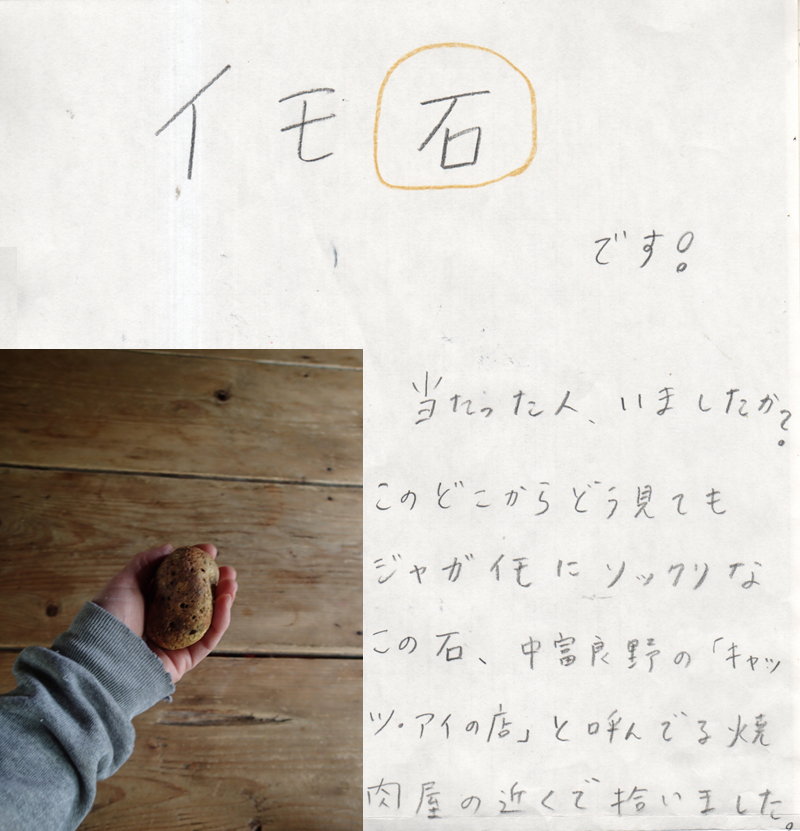 イモ石
です!
当たった人、いましたか?
このどこからどう見ても
ジャガイモにソックリな
この石、中富良野の「キャッ
ツ・アイの店」と呼んでる焼
肉屋の近くで拾いました。